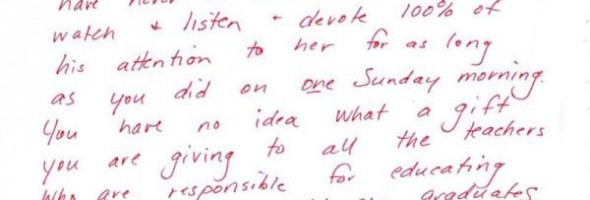 have never
watch & listen - devote 100% of
his attention to her for as long
as you did on one Sunday morning.
You have no idea what a gift
you are giving to all the teachers
who are responsible for educating
graduates